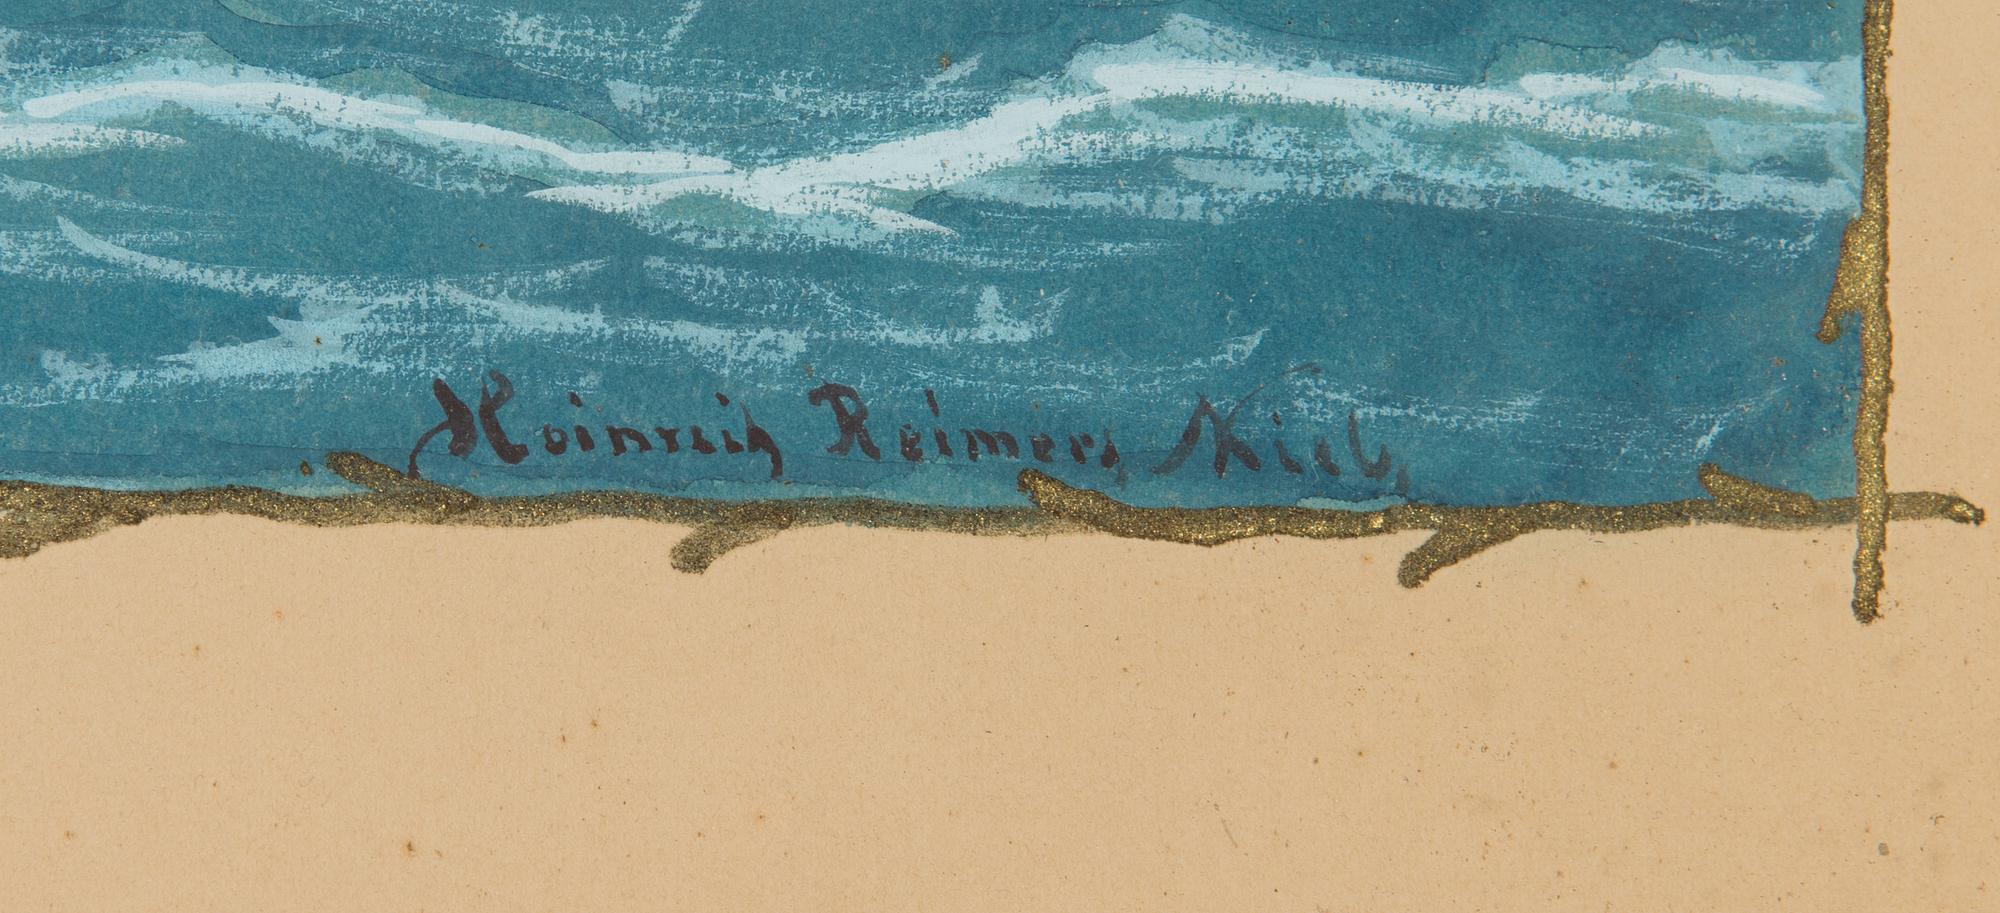 Heinrich Reimers, Kiel,